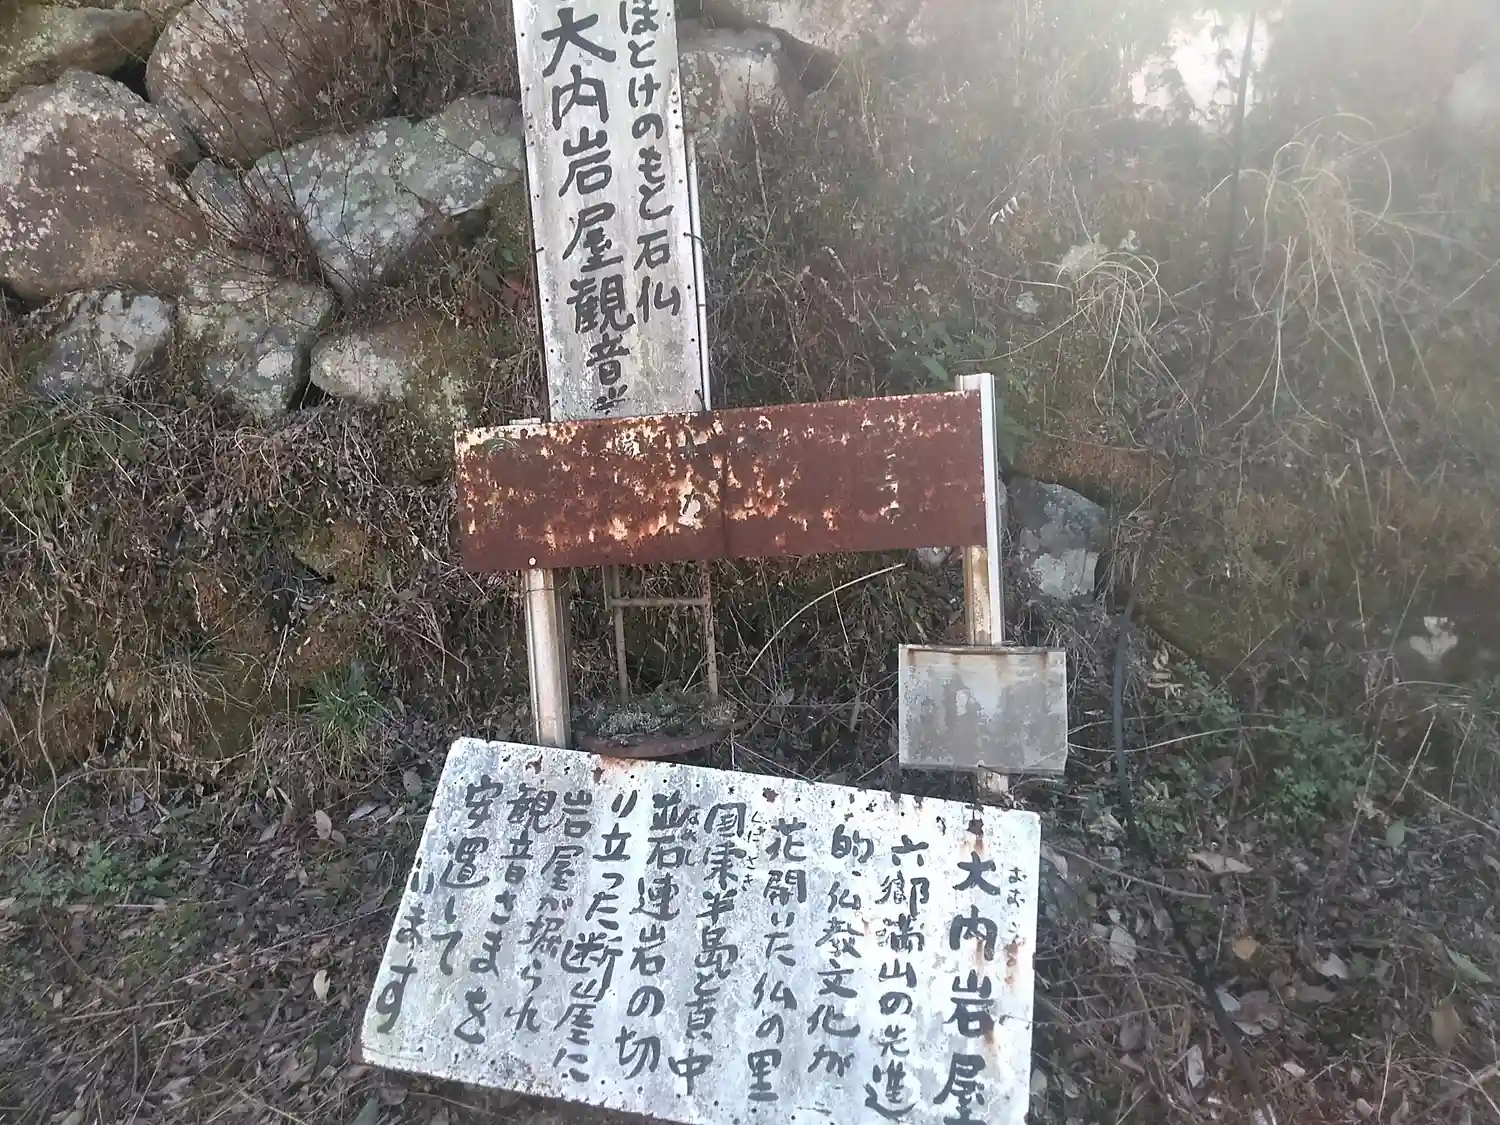 ほとけのもと石仏
大内岩屋観音
大内岩屋
六郷満山の先進
的、仏教文化が
花開いた仏の里
国東半島ど真中
並石連岩の切
り立った断崖に
岩屋が堀られ
観音さまを
安置して
います